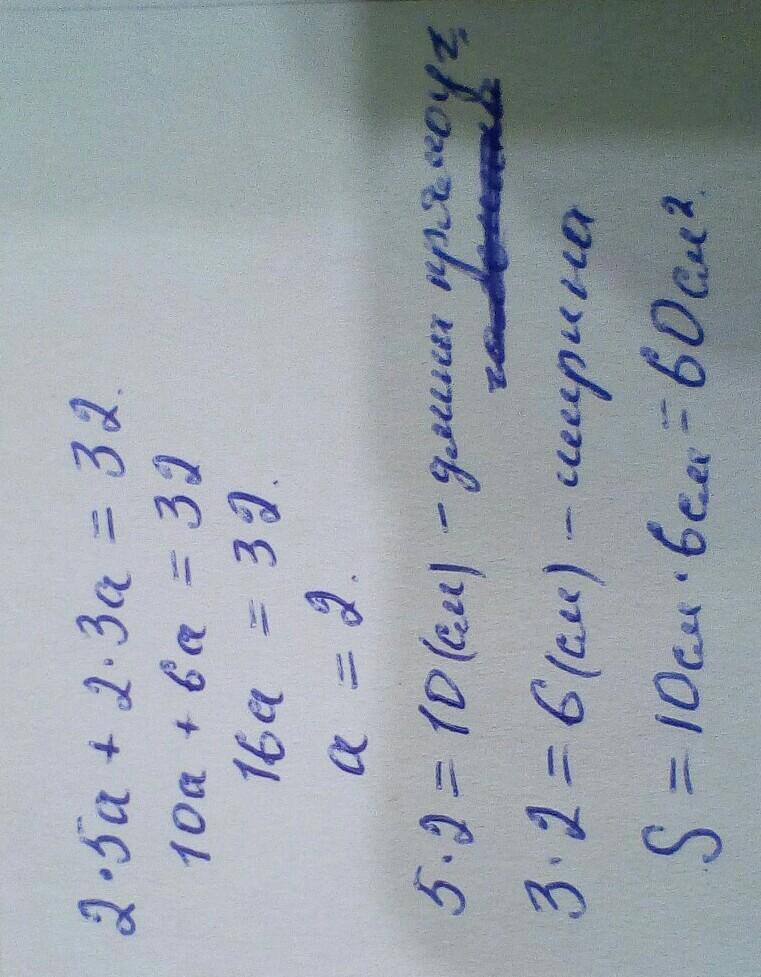 2·5a + 2·3a = 32.
10a + 6a = 32
16a = 32.
a = 2.
5·2 = 10(см) - длина прямоуг.
3·2 = 6(см) - ширина
S = 10см·6см = 60см².